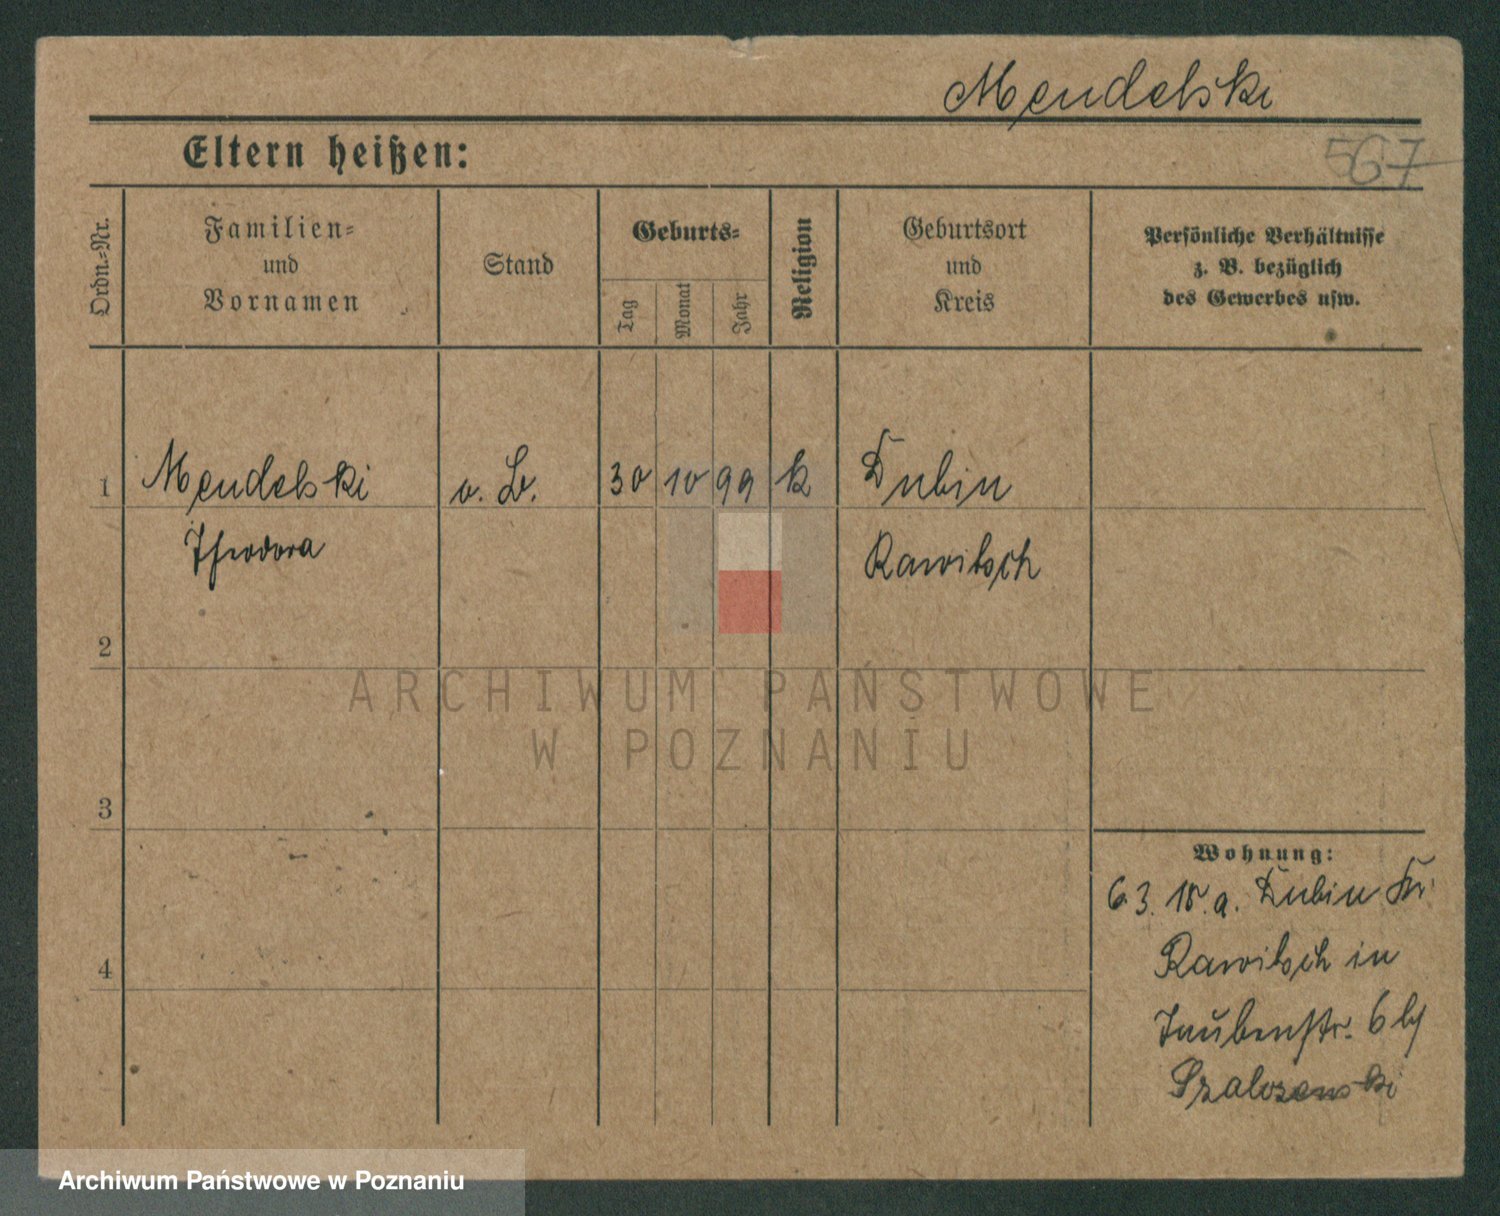 Mendelski
567
Eltern heißen:
Ordn.-Nr.
Familien-
und
Vornamen
Stand
Geburts-
Tag
Monat
Jahr
Religion
Geburtsort
und
Kreis
Persönliche Verhältnisse
z. B. bezüglich
des Gewerbes usw.
1 Mendelski o. B. 30 10 99 k Dubin
Theodora Rawitsch
2
3
4
Wohnung:
6.3.18. a. Dubin Kr.
Rawitsch in
Taubenstr. 6 b/
ARCHIWUM PAŃSTWOWE
W POZNANIU
Archiwum Państwowe w Poznaniu